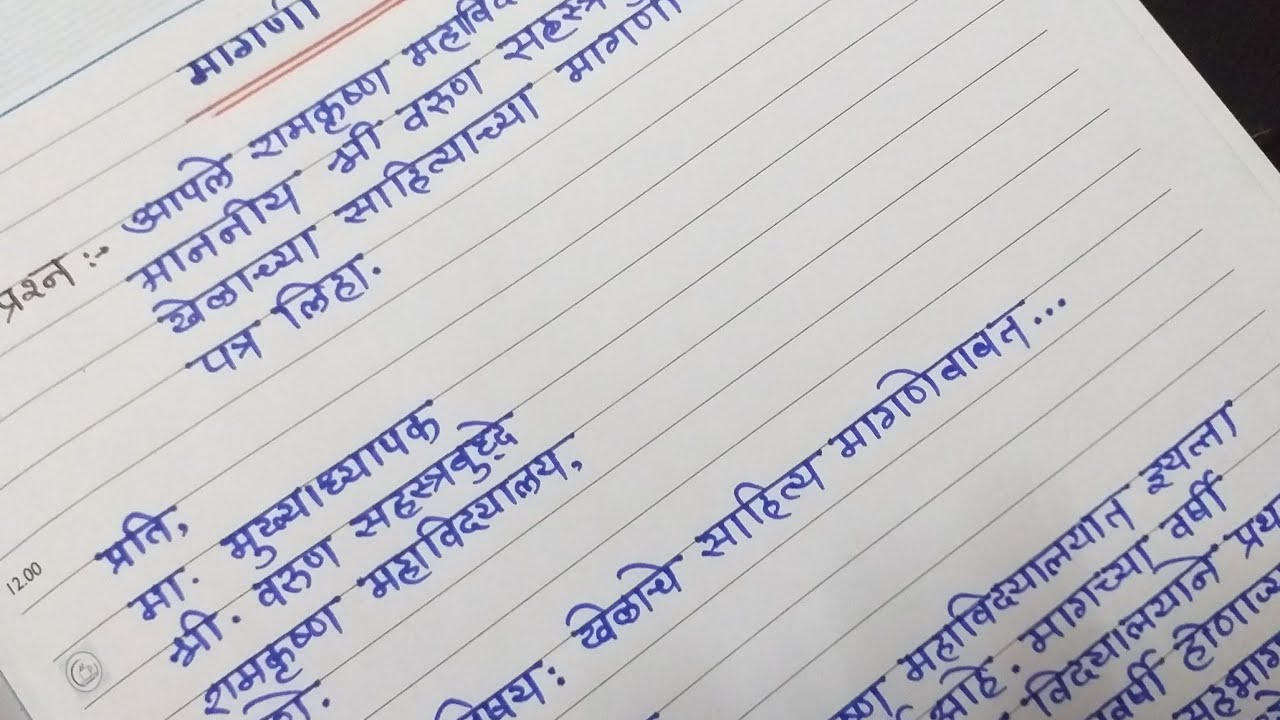 मागणी
प्रश्न :- आपले रामकृष्ण
माननीय श्री वरुण
खेळाच्या साहित्याच्या मागणी
पत्र लिहा.
प्रति,
मा. मुख्याध्यापक
श्री. वरुण सहस्त्रबुध्दे
रामकृष्ण महाविद्यालय,
विषय: खेळाचे साहित्य मागणेबाबत...
महाविद्यालयात इयत्ता
आहे. मागच्या वर्षी
विद्यालयाने
वर्षी होणाऱ्या
12.00